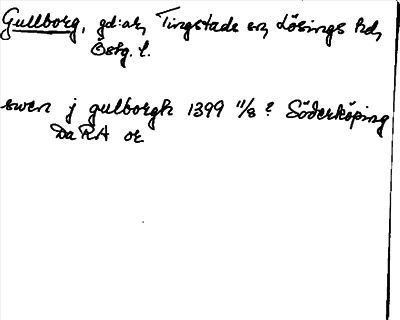 Gullborg, gd:ar, Tingstads sn, Lösings hd,
Östg. l.
swen j gulborgh 1399 11/8 ? Söderköping
DaRA or